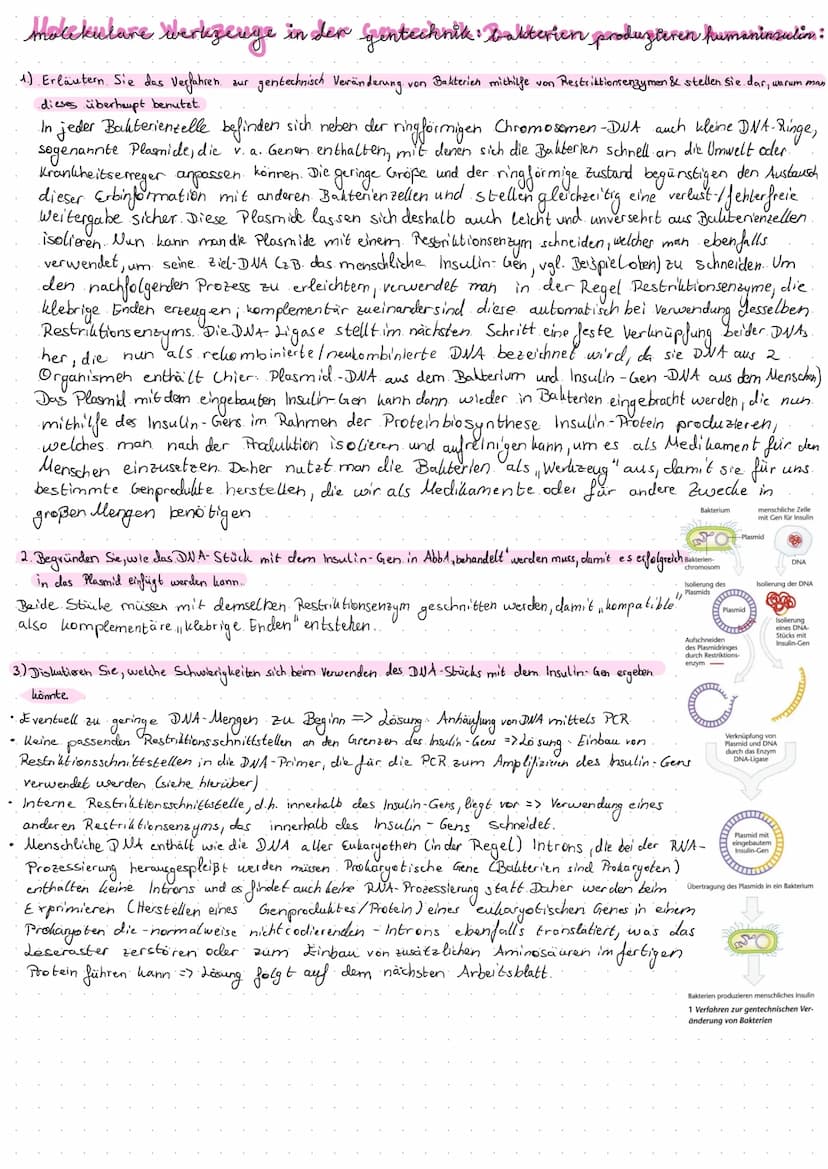 Molekulare Werkzeuge in der Gentechnik: Bakterien produzieren Humaninsulin:
1) Erläutern Sie das Verfahren zur gentechnisch Veränderung von Bakterien mithilfe von Restriktionsenzymen & stellen Sie dar, warum man
dieses überhaupt benutzt.
In jeder Bakterienzelle befinden sich neben der ringförmigen Chromosomen-DNA auch kleine DNA-Ringe,
sogenannte Plasmide, die v. a. Genen enthalten, mit denen sich die Bakterien schnell an die Umwelt oder
Krankheitserreger anpassen können. Die geringe Größe und der ringförmige Zustand begünstigen den Austausch
dieser Erbinformation mit anderen Bakterienzellen und stellen gleichzeitig eine verlust-/fehlerfreie
Weitergabe sicher. Diese Plasmide lassen sich deshalb auch leicht und unversehrt aus Bakterienzellen
isolieren. Nun kann man die Plasmide mit einem Restriktionsenzym schneiden, welches man ebenfalls
verwendet, um seine Ziel-DNA (z.B. das menschliche Insulin-Gen, vgl. Beispiel oben) zu schneiden. Um
den nachfolgenden Prozess zu erleichtern, verwendet man in der Regel Restriktionsenzyme, die
klebrige Enden erzeugen; komplementär zueinander sind diese automatisch bei Verwendung desselben
Restriktionsenzyms. Die DNA-Ligase stellt im nächsten Schritt eine feste Verknüpfung beider DNAs
her, die nun als rekombinierte/neukombinierte DNA bezeichnet wird, da sie DNA aus 2
Organismen enthält (hier: Plasmid-DNA aus dem Bakterium und Insulin-Gen-DNA aus dem Menschen)
Das Plasmid mit dem eingebauten Insulin-Gen kann dann wieder in Bakterien eingebracht werden, die nun
mithilfe des Insulin-Gens im Rahmen der Proteinbiosynthese Insulin-Protein produzieren,
welches man nach der Produktion isolieren und aufreinigen kann, um es als Medikament für den
Menschen einzusetzen. Daher nutzt man die Bakterien als „Werkzeug" aus, damit sie für uns
bestimmte Genprodukte herstellen, die wir als Medikamente oder für andere Zwecke in
großen Mengen benötigen
2. Begründen Sie, wie das DNA-Stück mit dem Insulin-Gen in Abb1 „behandelt" werden muss, damit es erfolgreich
in das Plasmid einfügt werden kann.
Beide Stücke müssen mit demselben Restriktionsenzym geschnitten werden, damit „kompatible"
also komplementäre „klebrige Enden" entstehen.
3) Diskutieren Sie, welche Schwierigkeiten sich beim Verwenden des DNA-Stücks mit dem Insulin-Gen ergeben
könnte.
• Eventuell zu geringe DNA-Mengen zu Beginn => Lösung: Anhäufung von DNA mittels PCR
• Keine passenden Restriktionsschnittstellen an den Grenzen des Insulin-Gens => Lösung: Einbau von
Restriktionsschnittstellen in die DNA-Primer, die für die PCR zum Amplifizieren des Insulin-Gens
verwendet werden (siehe hierüber)
• Interne Restriktionsschnittstelle, d.h. innerhalb des Insulin-Gens, liegt vor => Verwendung eines
anderen Restriktionsenzyms, das innerhalb des Insulin-Gens schneidet.
• Menschliche DNA enthält wie die DNA aller Eukaryothen (in der Regel) Introns, die bei der RNA-
Prozessierung herausgespleißt werden müssen. Prokaryotische Gene (Bakterien sind Prokaryoten)
enthalten keine Introns und es findet auch keine RNA-Prozessierung statt. Daher werden beim
Exprimieren (Herstellen eines Genproduktes/Protein) eines eukaryotischen Genes in einem
Prokaryoten die -normalweise nicht codierenden- Introns ebenfalls translatiert, was das
Leseraster zerstören oder zum Einbau von zusätzlichen Aminosäuren im fertigen
Protein führen kann => Lösung folgt auf dem nächsten Arbeitsblatt.
Bakterium
menschliche Zelle
mit Gen für Insulin
Plasmid
Bakterien-
chromosom
DNA
Isolierung des
Plasmids
Isolierung der DNA
Plasmid
Isolierung
eines DNA-
Stücks mit
Insulin-Gen
Aufschneiden
des Plasmidringes
durch Restriktions-
enzym
Verknüpfung von
Plasmid und DNA
durch das Enzym
DNA-Ligase
Plasmid mit
eingebautem
Insulin-Gen
Übertragung des Plasmids in ein Bakterium
Bakterien produzieren menschliches Insulin
1 Verfahren zur gentechnischen Ver-
änderung von Bakterien